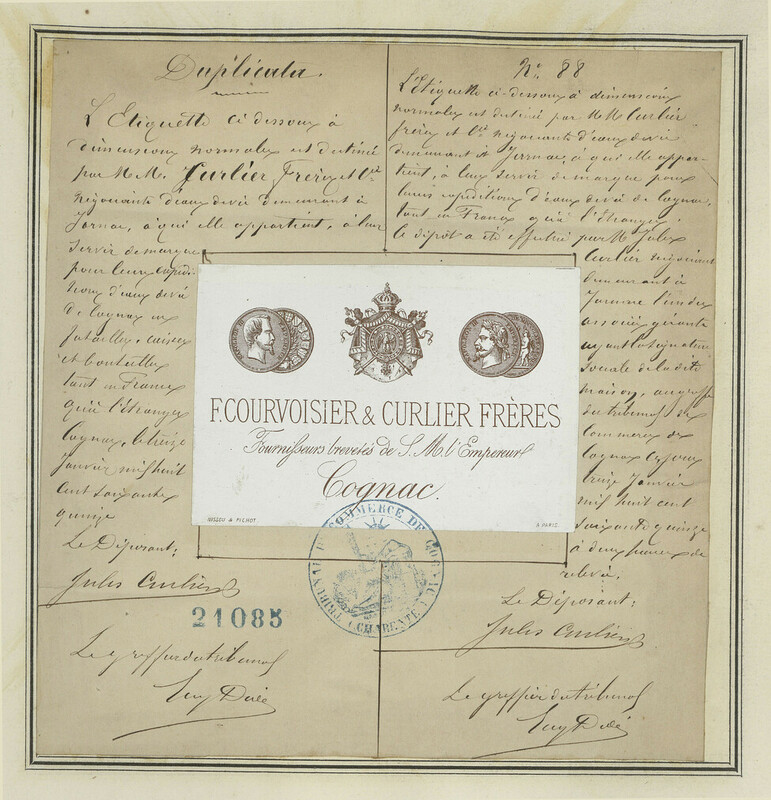 Duplicata.
L'Etiquette ci dessous à
dimensions normales est destinée
par MM. Curlier Frères et Cie
négociants d'eaux de vie demeurant à
Jarnac, à qui elle appartient, à leur
servir de marque
pour leurs expédi-
tions d'eaux de vie
de Cognac en
futailles, caisses
et bouteilles
tant en France
qu'à l'étranger
Cognac, le treize
Janvier mil huit
cent soixante
quinze
Le Déposant:
Jules Curlier
21085
Le greffier du tribunal
No. 88
L'Etiquette ci-dessous à dimensions
normales est destinée par MM Curlier
frères et Cie négociants d'eaux de vie
demeurant à Jarnac, à qui elle appar-
tient, à leur servir de marque pour
leurs expéditions d'eaux de vie de Cognac,
tant en France qu'à l'étranger.
le dépôt a été effectué par M. Jules
Curlier négociant
demeurant à
Jarnac l'un des
associés gérants
ayant la signature
sociale de la dite
maison, au greffe
du tribunal de
Commerce de
Cognac ce jour
treize Janvier
mil huit cent
soixante quinze
à deux heures de
relevée.
Le Déposant:
Jules Curlier
Le greffier du tribunal
F. COURVOISIER & CURLIER FRÈRES
Fournisseurs brevetés de S. M. l'Empereur
Cognac.
NISSOU & PICHOT
A PARIS
TRIBUNAL DE COMMERCE DE COGNAC
(CHARENTE)